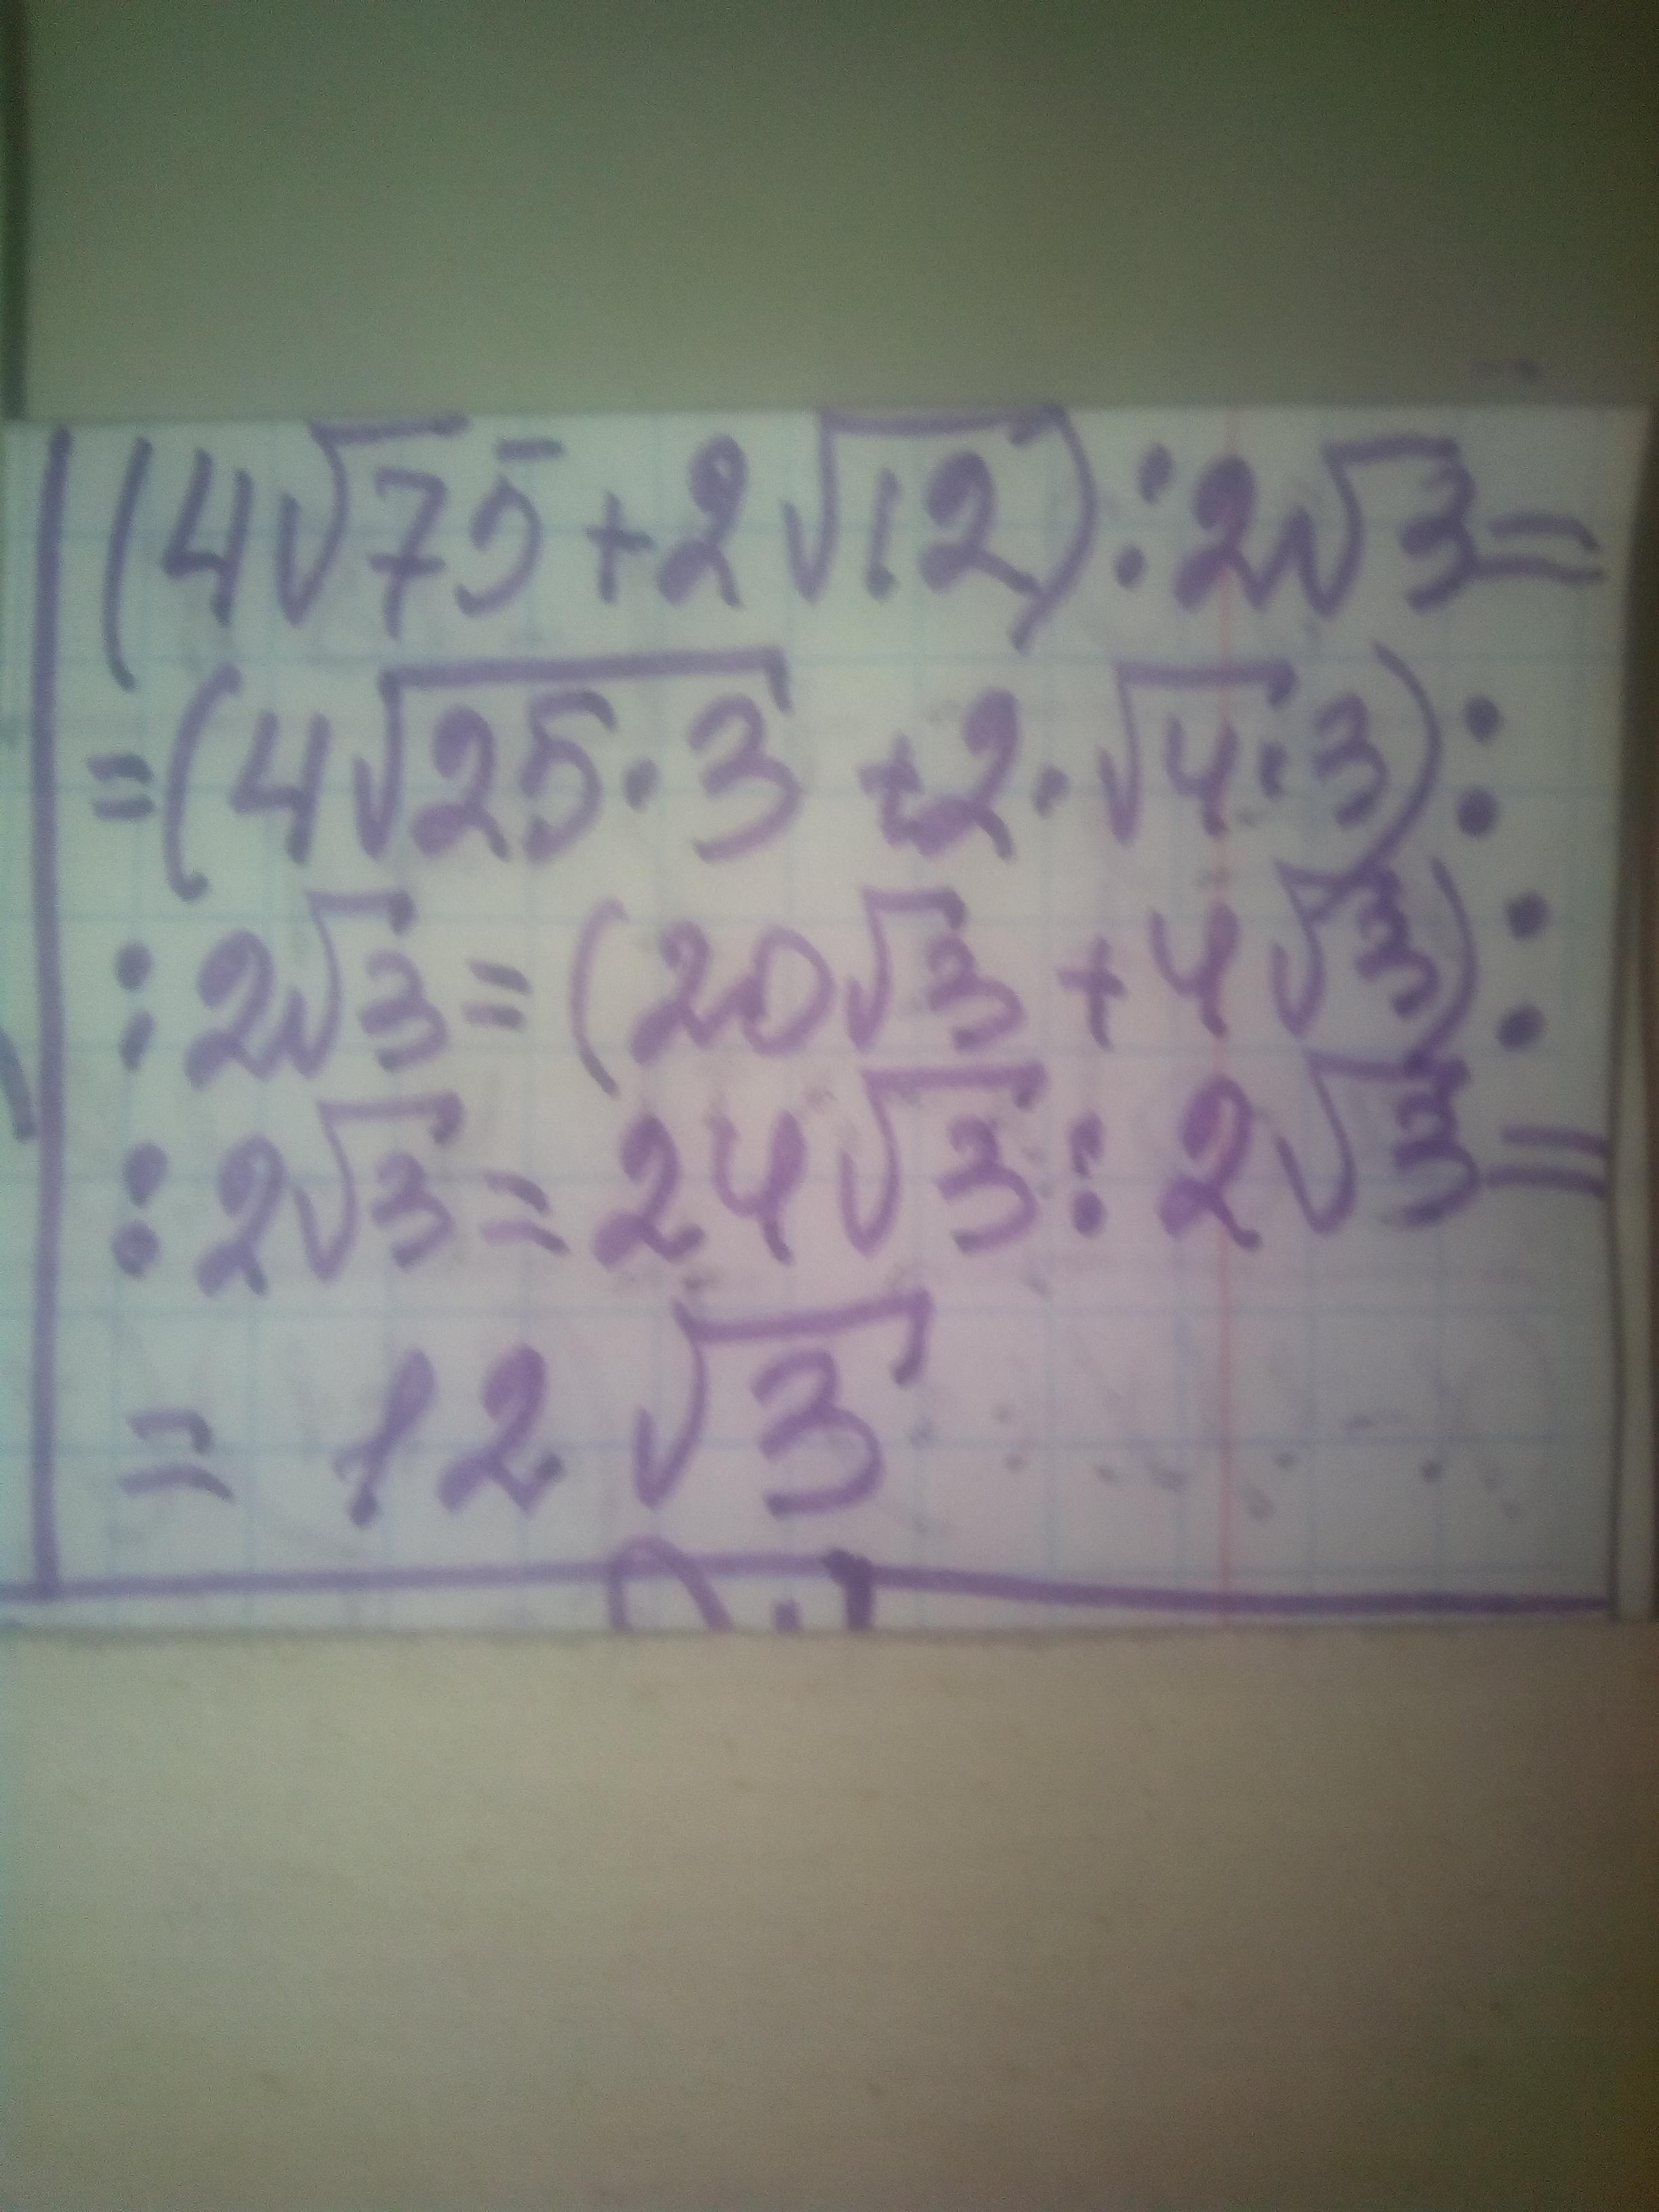 (4√75 + 2√12) : 2√3 =
= (4√25·3 + 2·√4·3) :
: 2√3 = (20√3 + 4√3) :
: 2√3 = 24√3 : 2√3 =
= 12√3